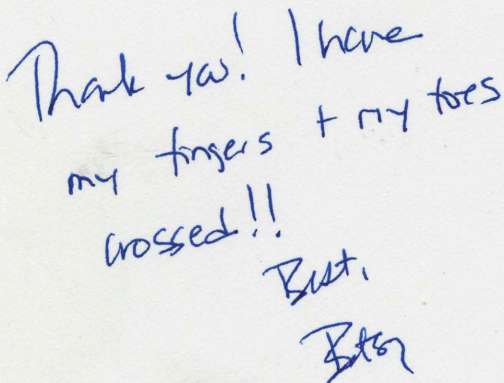 Thank you! I have
my fingers + my toes
crossed!!
Best,
Betsy